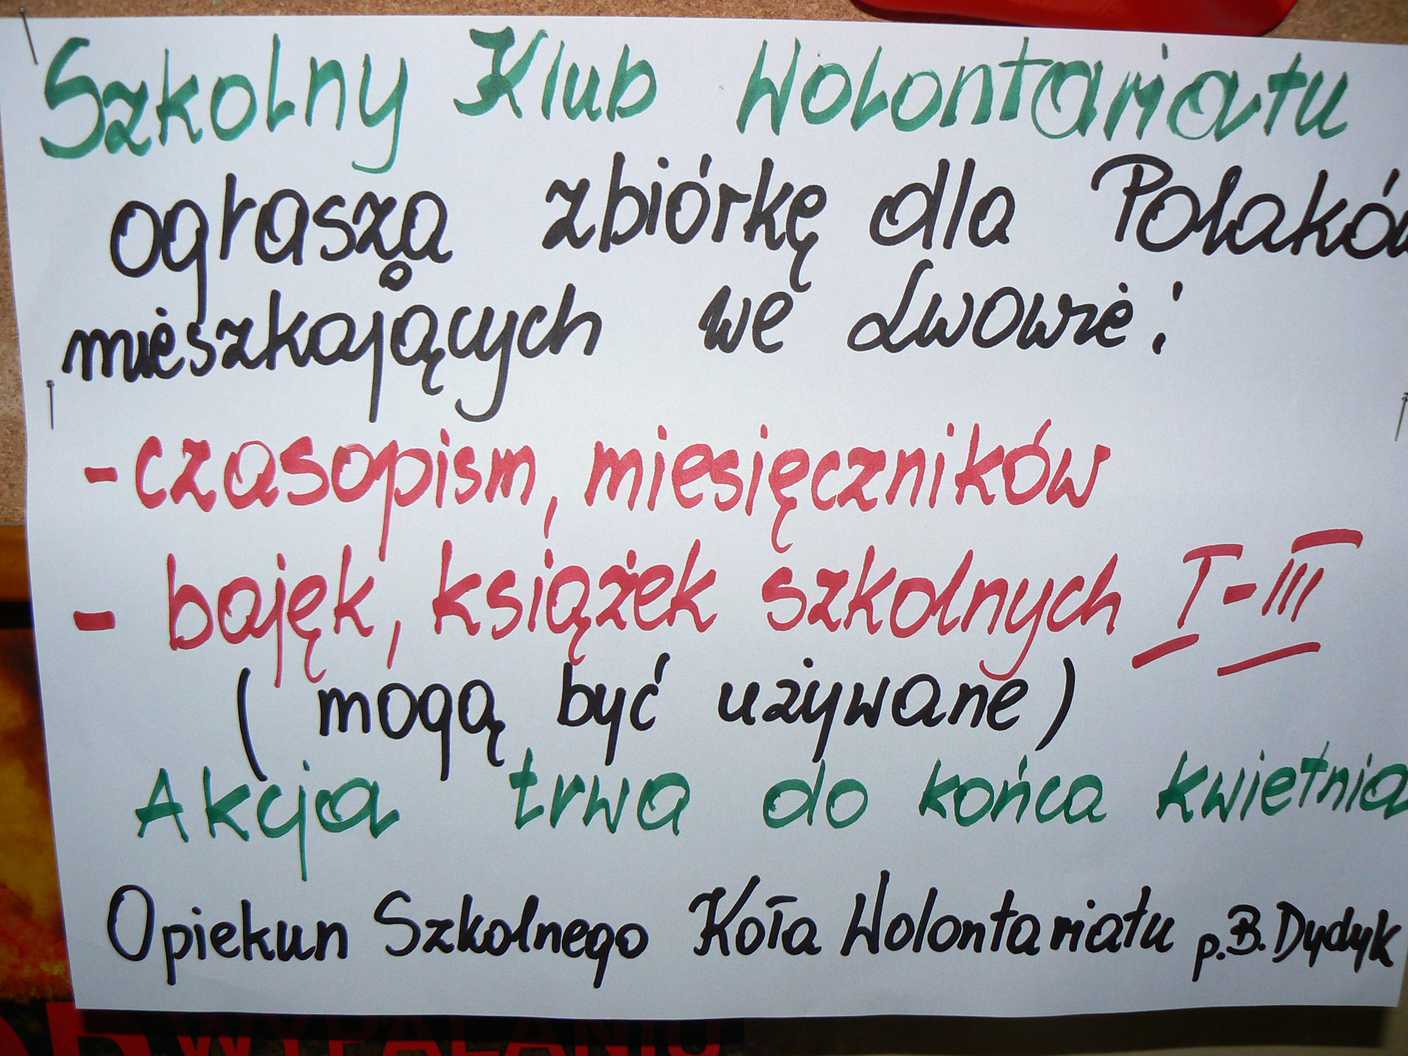 Szkolny Klub Wolontariatu
ogłasza zbiórkę dla Polaków
mieszkających we Lwowie:
- czasopism, miesięczników
- bajęk, książek szkolnych I-III
( mogą być używane )
Akcja trwa do końca kwietnia
Opiekun Szkolnego Koła Wolontariatu p. B. Dydyk
WYPALANIU